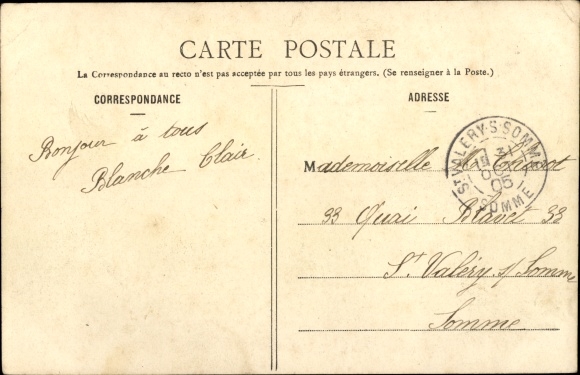 CARTE POSTALE
La Correspondance au recto n'est pas acceptée par tous les pays étrangers. (Se renseigner à la Poste.)
CORRESPONDANCE
ADRESSE
Bonjour à tous
Blanche Clair.
ST VALERY-S-SOMME
05
SOMME
Mademoiselle
33 Quai Blavet 33
St Valéry s/ Somme
Somme